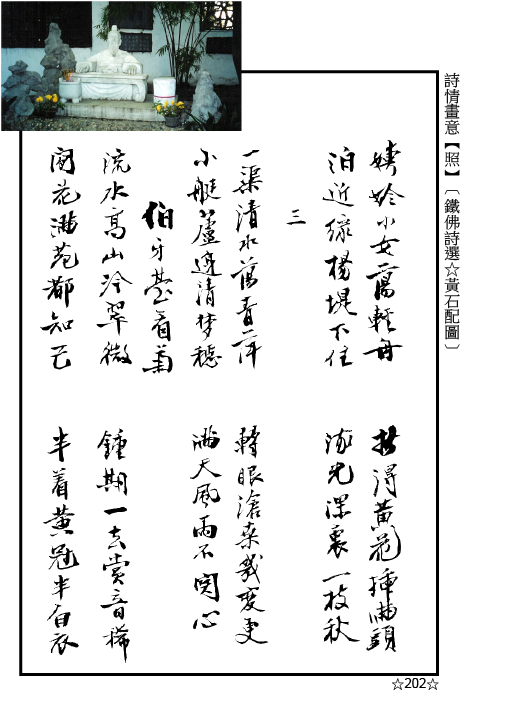 詩情畫意【照】〔鐵佛詩選☆黃石配圖〕
小女蕩輕舟
得黃花插滿頭
泊近綠楊堤下住
光深裏一枝秋
三
一渠清水舊青萍
轉眼滄桑幾變更
小艇蘆邊清夢穩
滿天風雨不關心
伯牙臺看菊
流水高山冷翠微
鍾期一去賞音稀
花滿苑都知己
半着黃冠半白衣
☆202☆